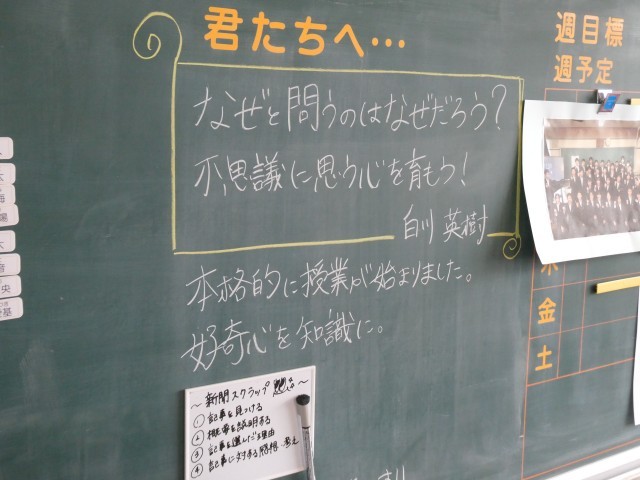 君たちへ…
なぜと問うのはなぜだろう?
不思議に思う心を育もう!
白川 英樹
本格的に授業が始まりました。
好奇心を知識に。
〜新聞スクラップ
①記事を見つける
②概要を説明する
③記事を選んだ理由
④記事に対する感想・考え
週目標
週予定
木
金
土